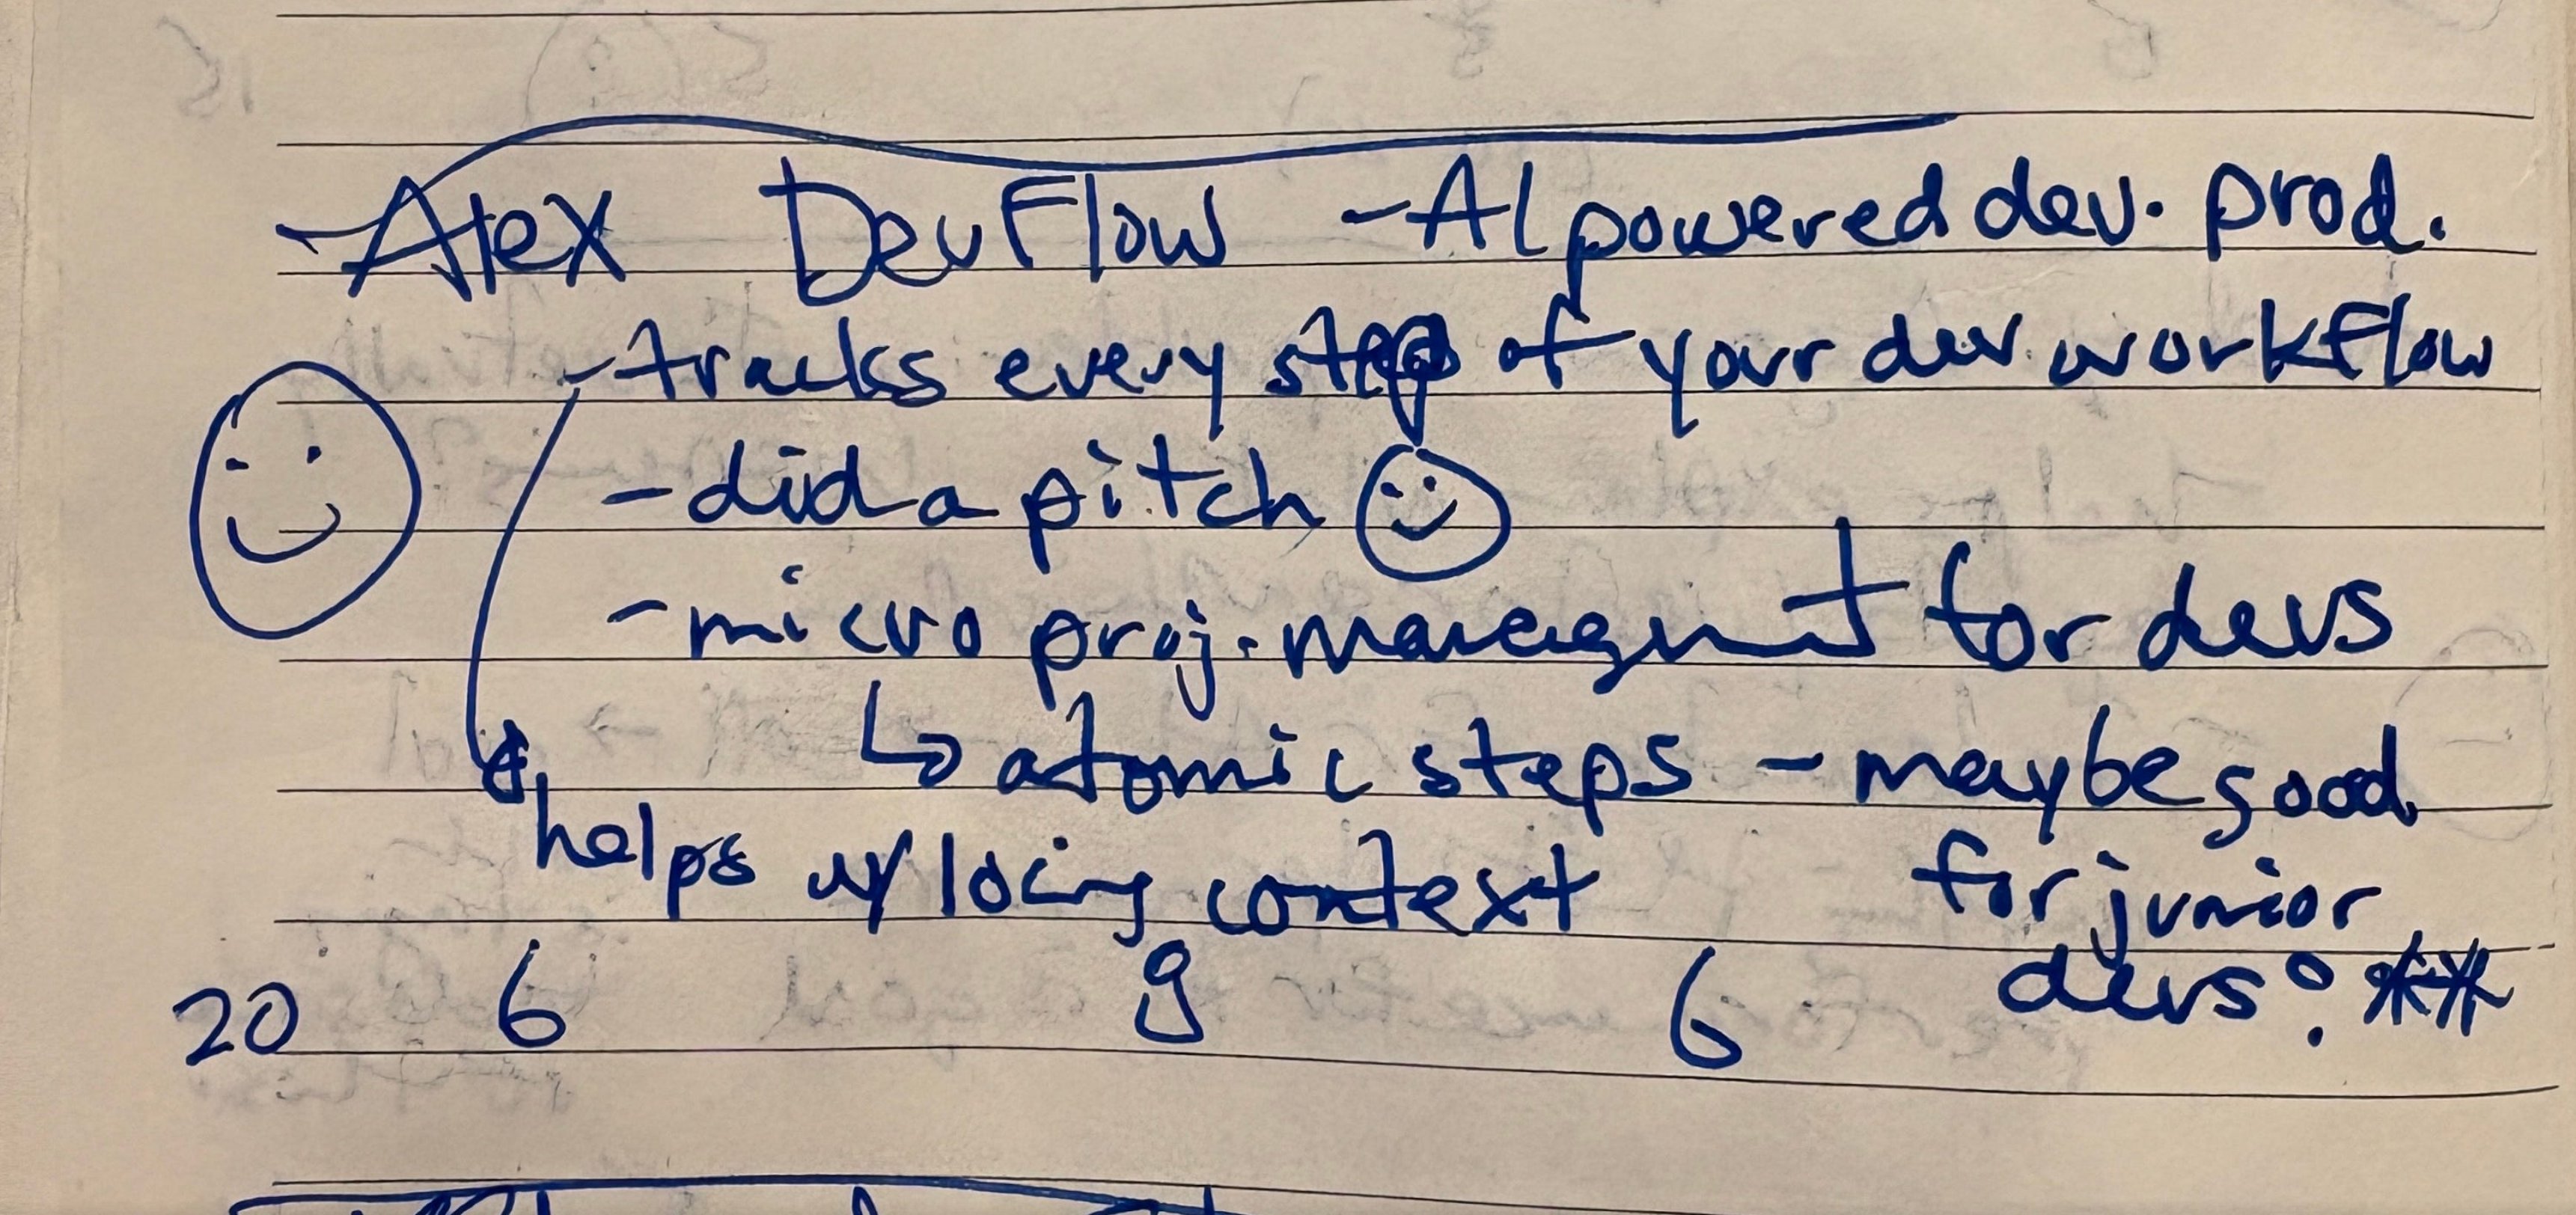 -Alex DevFlow -AI powered dev. prod.
-tracks every step of your dev workflow
-did a pitch
-micro proj. managmnt for devs
↳ atomic steps - maybe good
helps w/ locing context for junior
devs?
20 6 9 6